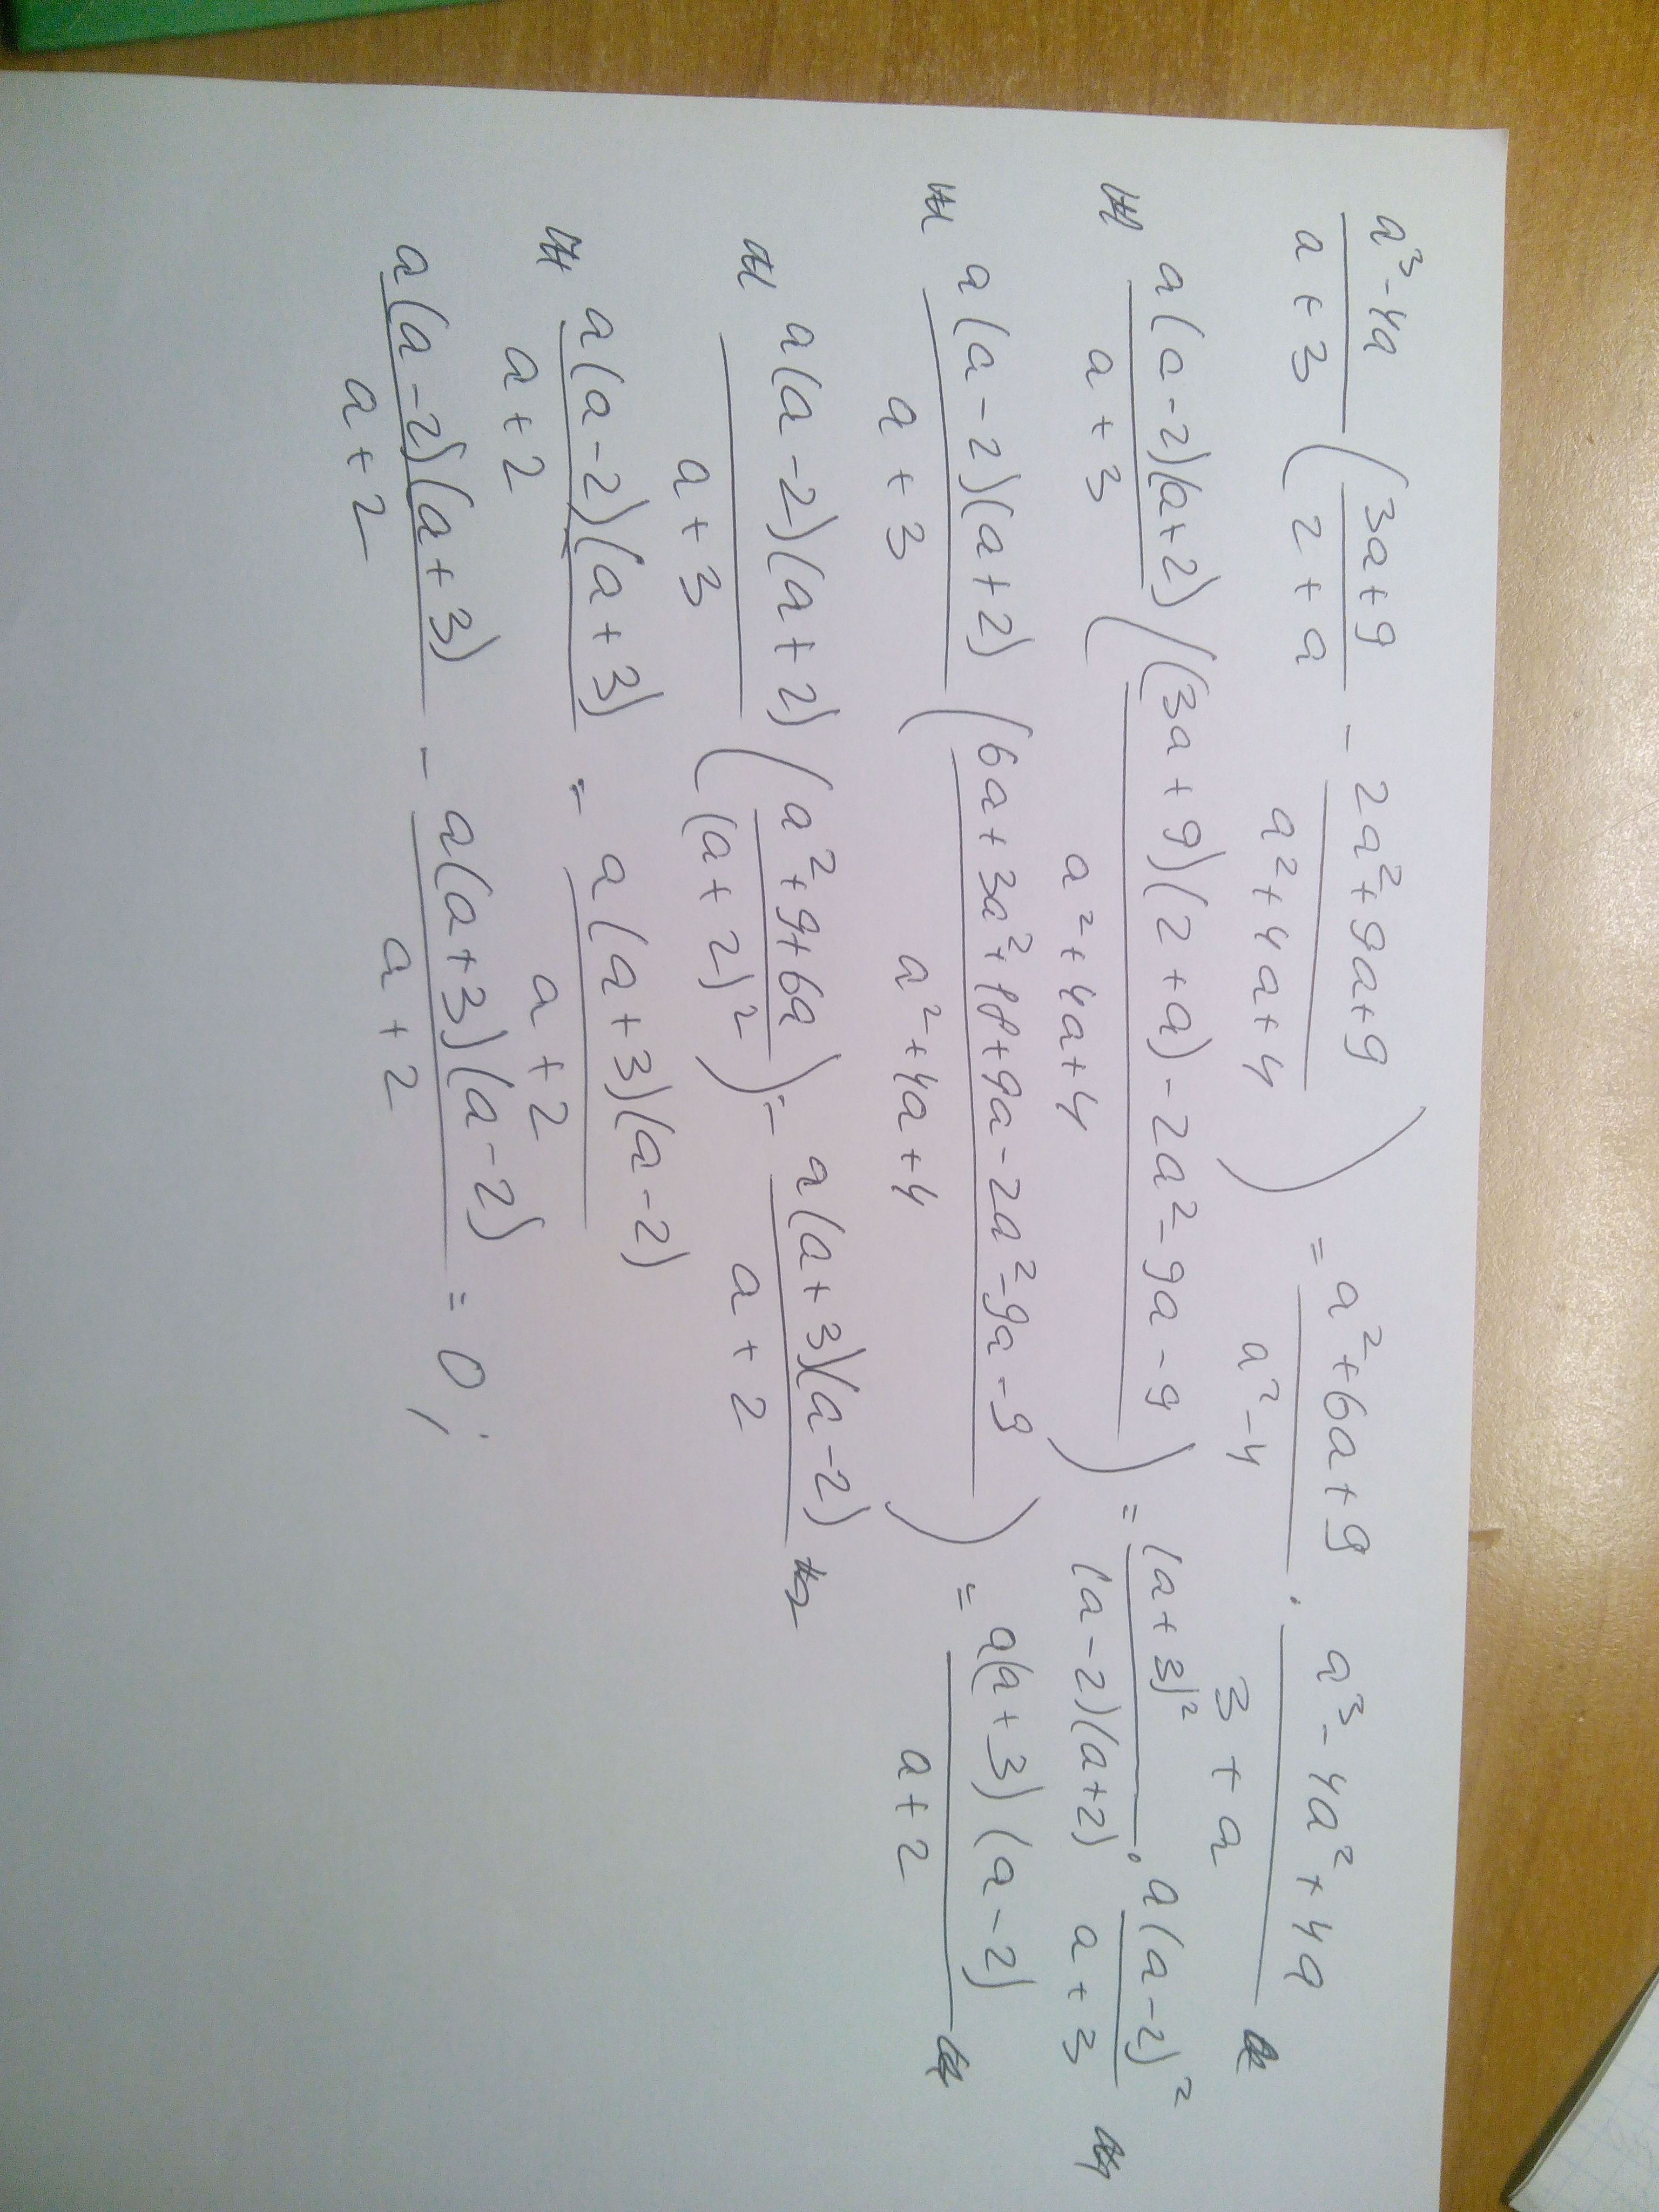 (a³-4a)/(a+3) ((3a+9)/(2+a) - (2a²+9a+9)/(a²+4a+4)) = (a²+6a+9)/(a²-4) · (a³-4a²+4a)/(3+a)
(a(a-2)(a+2))/(a+3) (((3a+9)(2+a)-2a²-9a-9)/(a²+4a+4)) = (a+3)²/((a-2)(a+2)) · (a(a-2)²)/(a+3)
(a(a-2)(a+2))/(a+3) ((6a+3a²+18+9a-2a²-9a-9)/(a²+4a+4)) = (a(a+3)(a-2))/(a+2)
(a(a-2)(a+2))/(a+3) ((a²+9+6a)/(a+2)²) = (a(a+3)(a-2))/(a+2)
(a(a-2)(a+3))/(a+2) = (a(a+3)(a-2))/(a+2)
(a(a-2)(a+3))/(a+2) - (a(a+3)(a-2))/(a+2) = 0;